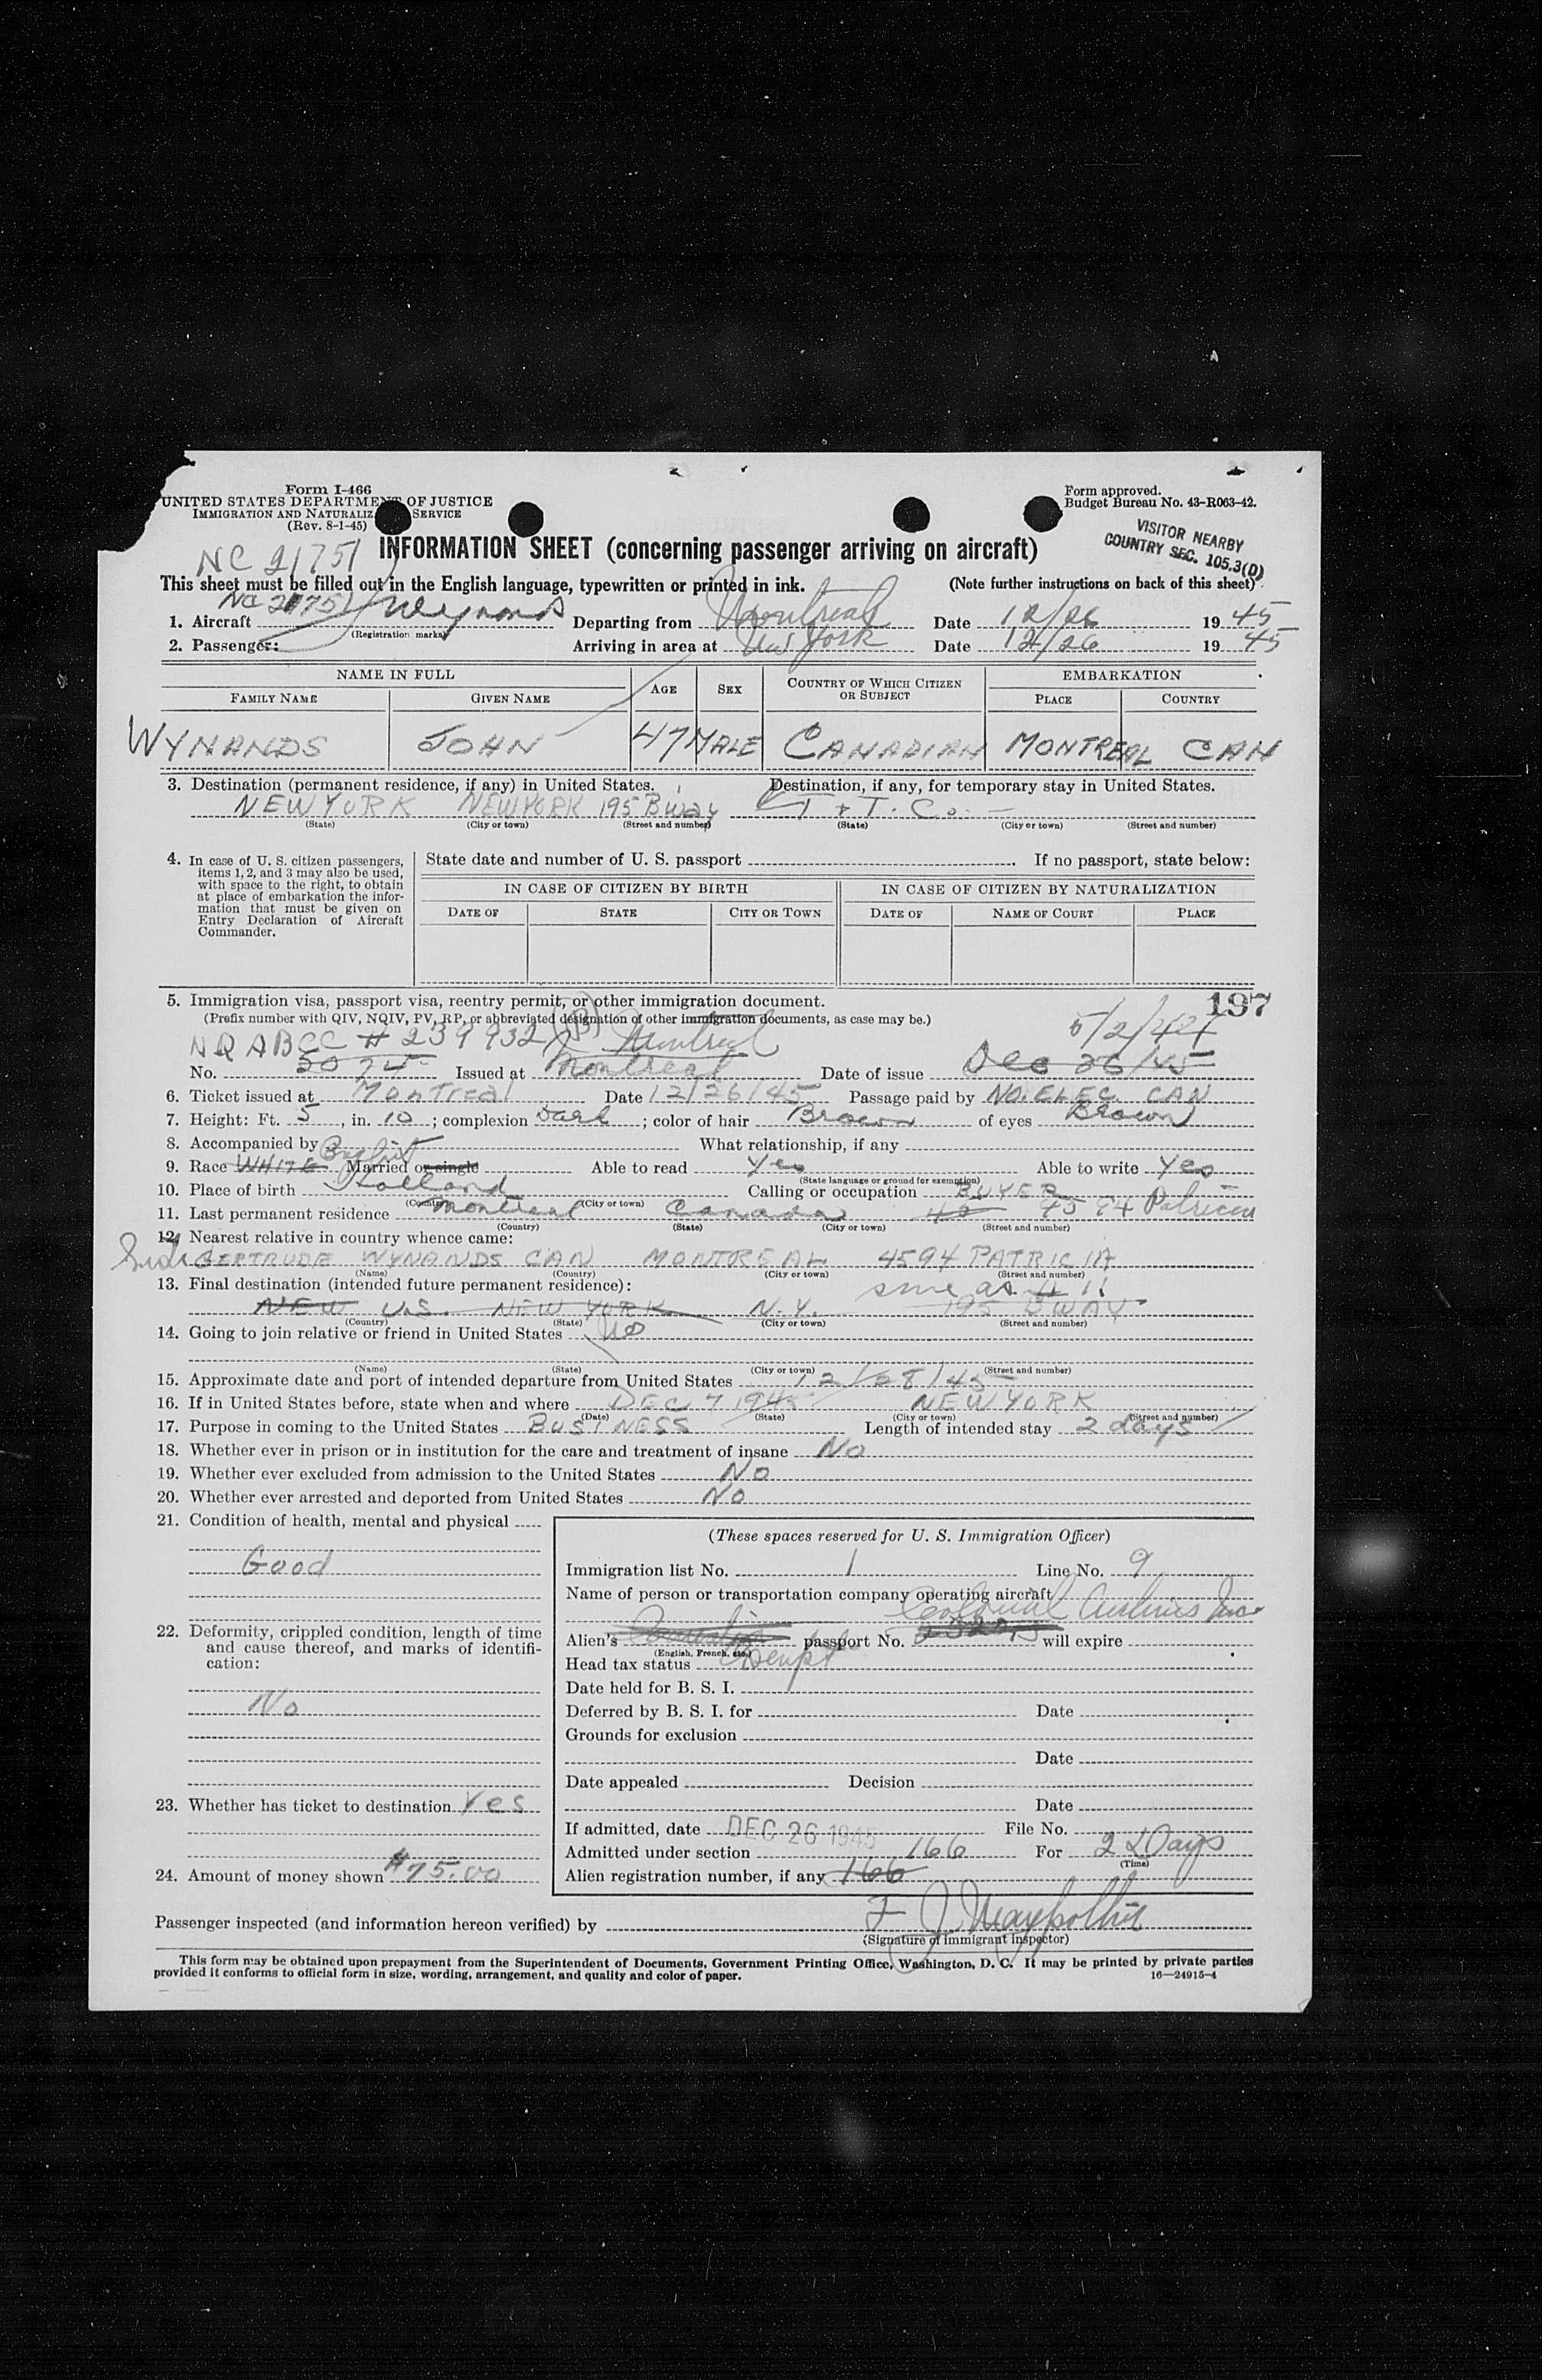 Form I-466
UNITED STATES DEPARTMENT OF JUSTICE
IMMIGRATION AND NATURALIZ SERVICE
(Rev. 8-1-45)
Form approved.
Budget Bureau No. 43-R063-42.
VISITOR NEARBY
COUNTRY SEC. 105.3(D)
NC 21751
INFORMATION SHEET (concerning passenger arriving on aircraft)
This sheet must be filled out in the English language, typewritten or printed in ink. (Note further instructions on back of this sheet)
1. Aircraft NC 21751 Departing from Montreal Date 12/26 1945
(Registration marks)
2. Passenger: Arriving in area at New York Date 12/26 1945
NAME IN FULL AGE SEX COUNTRY OF WHICH CITIZEN OR SUBJECT EMBARKATION
FAMILY NAME GIVEN NAME PLACE COUNTRY
WYNANDS JOHN 47 MALE CANADIAN MONTREAL CAN
3. Destination (permanent residence, if any) in United States. Destination, if any, for temporary stay in United States.
NEW YORK NEW YORK 195 Bway T & T. Co.
(State) (City or town) (Street and number) (State) (City or town) (Street and number)
4. In case of U. S. citizen passengers, items 1, 2, and 3 may also be used, with space to the right, to obtain at place of embarkation the information that must be given on Entry Declaration of Aircraft Commander.
State date and number of U. S. passport If no passport, state below:
IN CASE OF CITIZEN BY BIRTH IN CASE OF CITIZEN BY NATURALIZATION
DATE OF STATE CITY OR TOWN DATE OF NAME OF COURT PLACE
5. Immigration visa, passport visa, reentry permit, or other immigration document. 197
(Prefix number with QIV, NQIV, PV, RP, or abbreviated designation of other immigration documents, as case may be.)
NR ABCC # 239932 Montreal 5/2/42
No. 5074 Issued at Montreal Date of issue Dec 26/45
6. Ticket issued at Montreal Date 12/26/45 Passage paid by NO. ELEC CAN
7. Height: Ft. 5, in. 10; complexion Dark; color of hair Brown of eyes Brown
8. Accompanied by What relationship, if any
9. Race WHITE English Married or single Able to read Yes Able to write Yes
(State language or ground for exemption)
10. Place of birth Holland Calling or occupation BUYER
(Country) (City or town)
11. Last permanent residence Montreal Canada 4594 Patricia
(Country) (State) (City or town) (Street and number)
12. Nearest relative in country whence came:
GERTRUDE WYNANDS CAN MONTREAL 4594 PATRICIA
(Name) (Country) (City or town) (Street and number)
13. Final destination (intended future permanent residence): same as # 11
NEW U.S. NEW YORK N.Y. 195 BWAY
(Country) (State) (City or town) (Street and number)
14. Going to join relative or friend in United States No
(Name) (State) (City or town) (Street and number)
15. Approximate date and port of intended departure from United States 12/28/45
16. If in United States before, state when and where DEC 7 1945 NEW YORK
(Date) (State) (City or town) (Street and number)
17. Purpose in coming to the United States BUSINESS Length of intended stay 2 days
18. Whether ever in prison or in institution for the care and treatment of insane No
19. Whether ever excluded from admission to the United States No
20. Whether ever arrested and deported from United States No
21. Condition of health, mental and physical
Good
22. Deformity, crippled condition, length of time and cause thereof, and marks of identification:
No
23. Whether has ticket to destination Yes
24. Amount of money shown $75.00
(These spaces reserved for U. S. Immigration Officer)
Immigration list No. 1 Line No. 9
Name of person or transportation company operating aircraft
Colonial Airlines Inc
Alien's Canadian passport No. will expire
(English, French, etc.)
Head tax status Exempt
Date held for B. S. I.
Deferred by B. S. I. for Date
Grounds for exclusion
Date
Date appealed Decision
Date
If admitted, date DEC 26 1945 File No.
Admitted under section 166 For 2 Days
(Time)
Alien registration number, if any 166
Passenger inspected (and information hereon verified) by F J
(Signature of immigrant inspector)
This form may be obtained upon prepayment from the Superintendent of Documents, Government Printing Office, Washington, D. C. It may be printed by private parties
provided it conforms to official form in size, wording, arrangement, and quality and color of paper. 16—24915-4